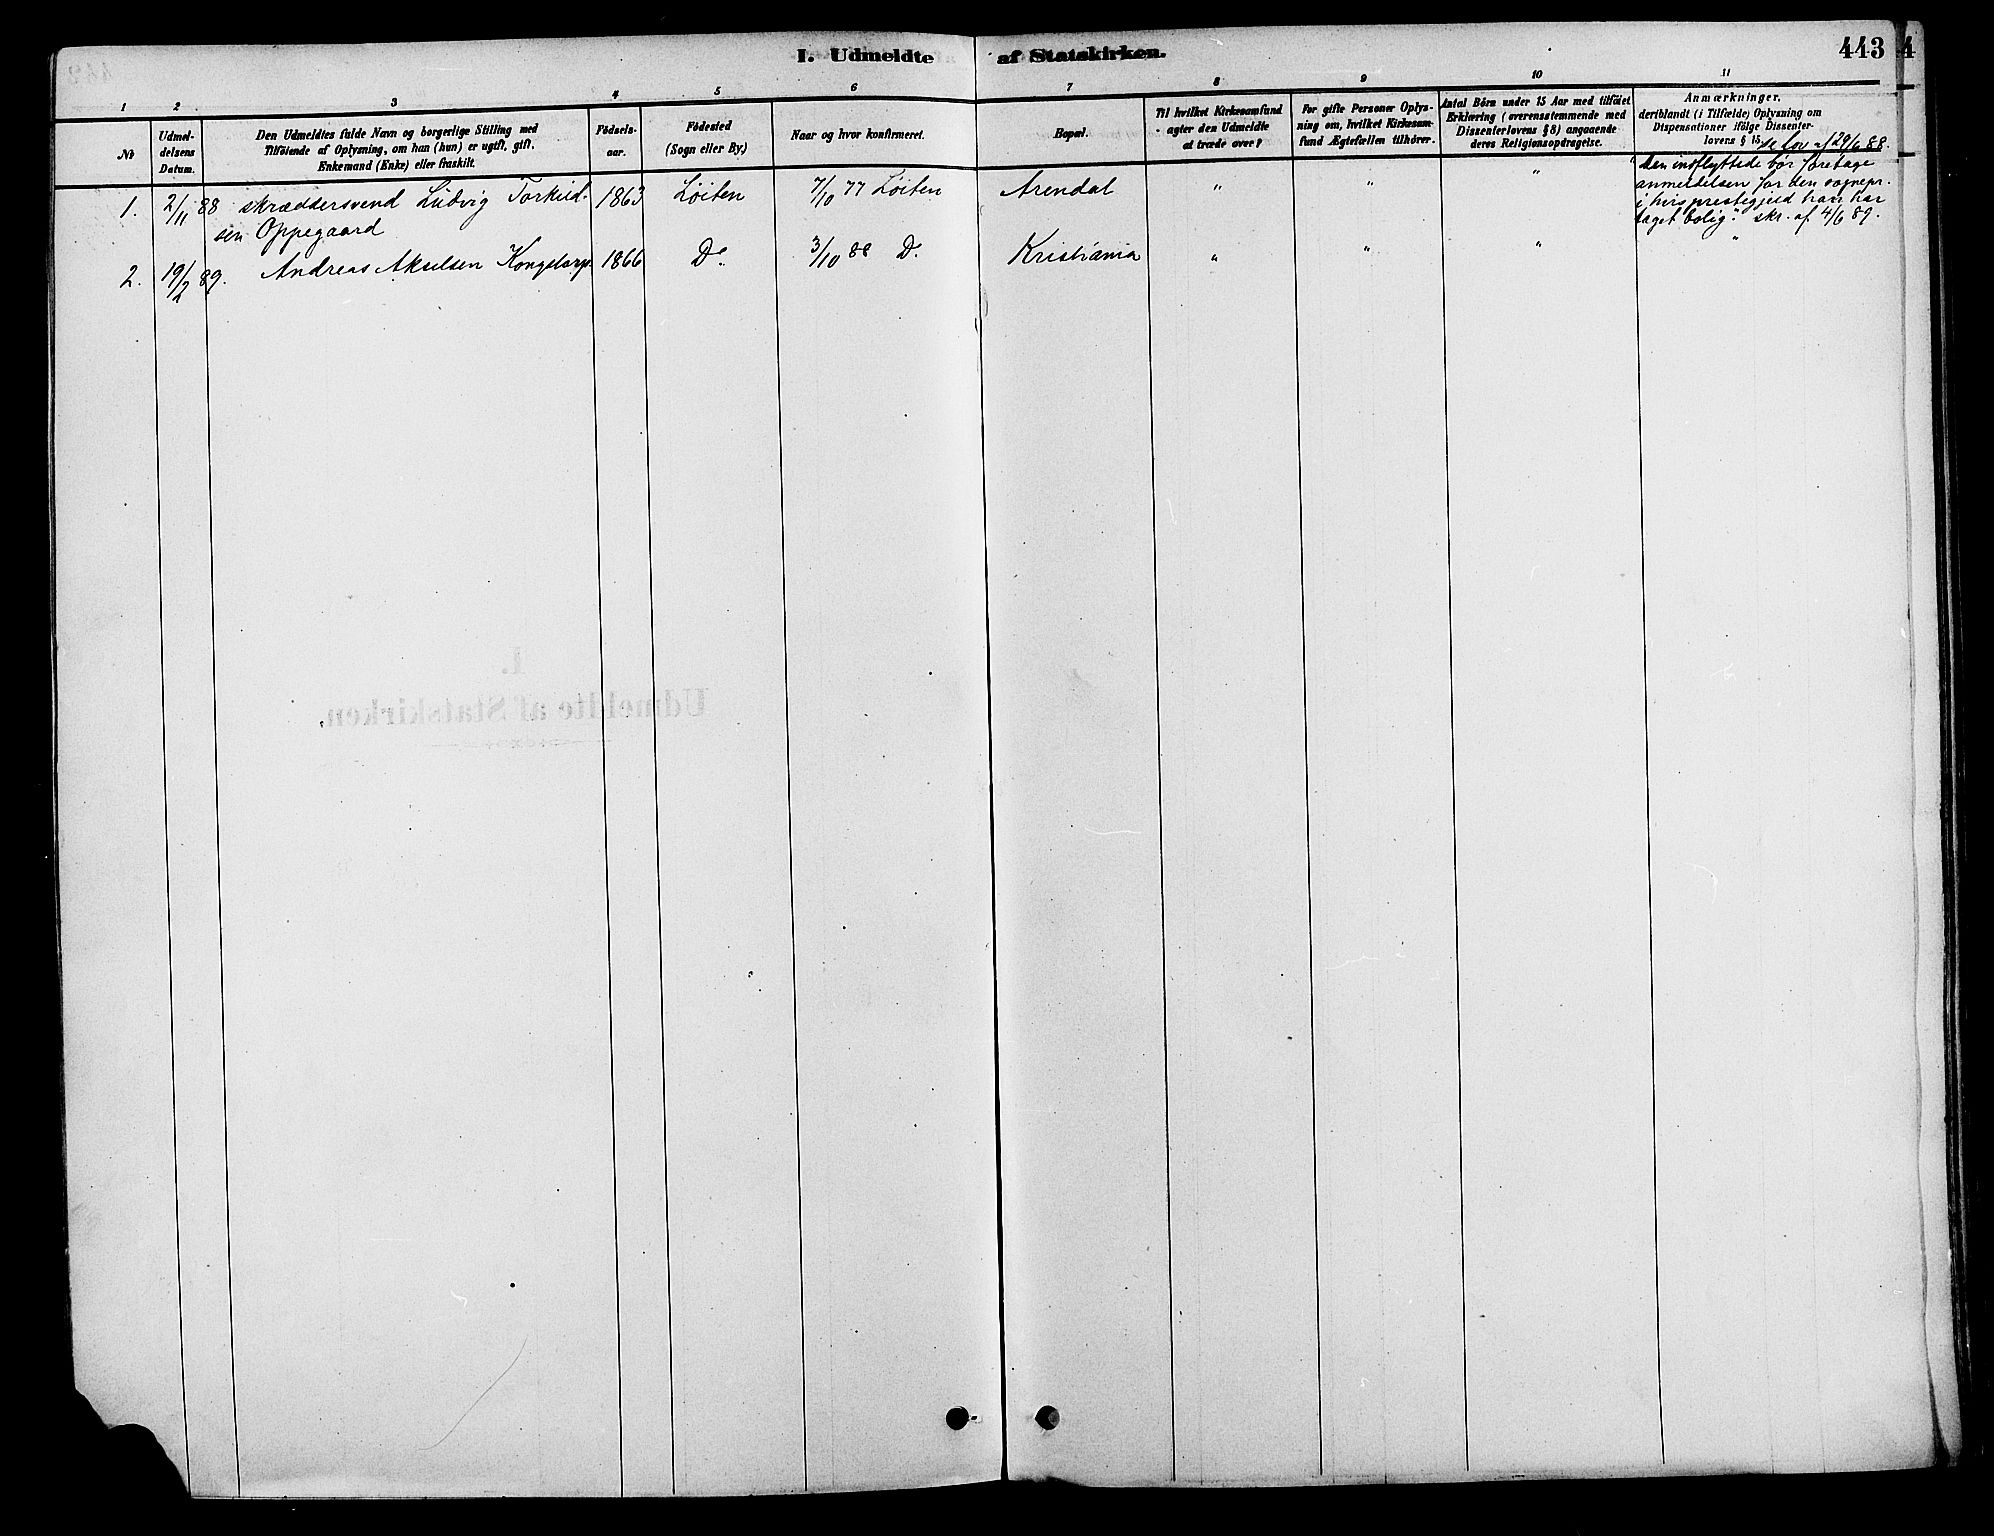 I. Udmeldte af Statskirken. 443
1 2 3 4 5 6 7 8 9 10 11
No
Udmel-
delsens
Datum.
Den Udmeldtes fulde Navn og borgerlige Stilling med
Tilføiende af Oplysning, om han (hun) er ugift, gift,
Enkemand (Enke) eller fraskilt.
Fødsels-
aar.
Fødested
(Sogn eller By)
Naar og hvor konfirmeret.
Bopæl.
Til hvilket Kirkesamfund
agter den Udmeldte
at træde over?
For gifte Personer Oplys-
ning om, hvilket Kirkesam-
fund Ægtefællen tilhører.
Antal Børn under 15 Aar med tilføiet
Erklæring (overensstemmende med
Dissenterlovens § 8) angaaende
deres Religionsopdragelse.
Anmærkninger,
deriblandt (i Tilfælde) Oplysning om
Dispensationer ifølge Dissenter-
lovens § 15.
se lov af 29/6 88.
1. 2/11 88 skræddersvend Ludvig Torkild- 1863 Löiten 7/10 77 Löiten Arendal " " "
sen Oppegaard
"Den indflyttede bør foretage
anmeldelsen for den sognepr.
i hvis prestegjeld han har
taget bolig." skr. af 4/6 89.
2. 19/2 89. Andreas Akselsen Kongstorp 1866 Do. 3/10 88 Do. Kristiania " " " "